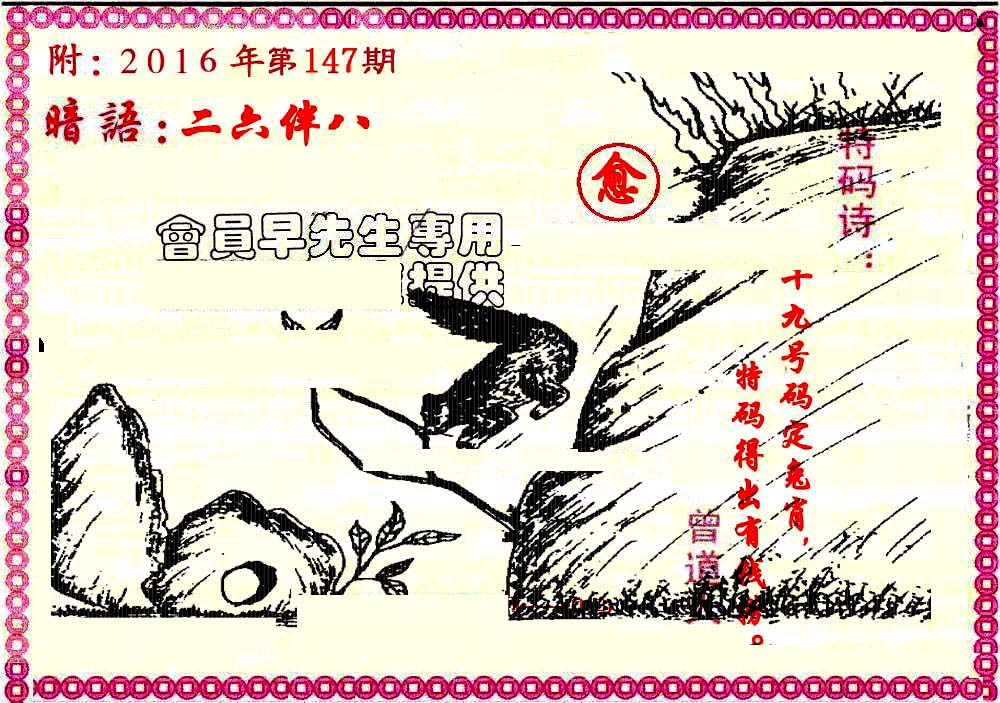 附：2016年第147期
暗語：二六伴八
愈
會員早先生專用
提供
特码诗：
十九号码定兔肖，
特码得出有
曾道